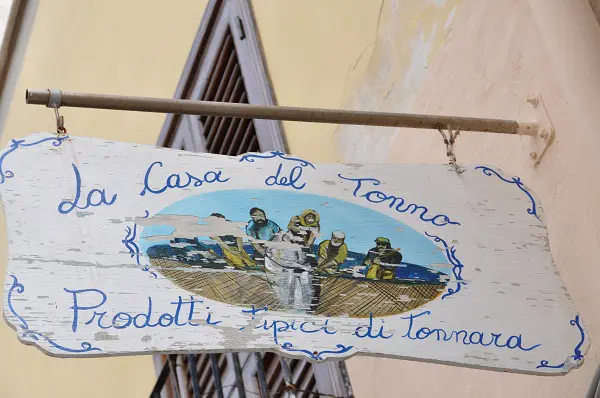 La Casa del Tonno
Prodotti tipici di Tonnara